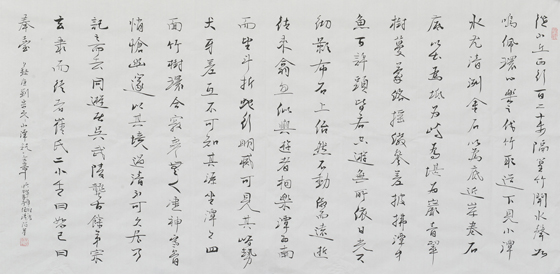 從小丘西行百二十步隔篁竹聞水聲如
鳴佩環心樂之伐竹取道下見小潭
水尤清洌全石以為底近岸卷石
底以出為坻為嶼為嵁為巖青翠
樹蔓蒙絡搖綴參差披拂潭中
魚百許頭皆若空遊無所依日光下
徹影布石上佁然不動俶爾遠逝
往來翕忽似與遊者相樂潭西南
而望斗折蛇行明滅可見其岸勢
犬牙差互不可知其源坐潭上四
面竹樹環合寂寥無人凄神寒骨
悄愴幽邃以其境過清不可久居乃
記之而去同遊者吳武陵龔古余弟宗
玄隸而從者崔氏二小生曰恕己曰
奉壹